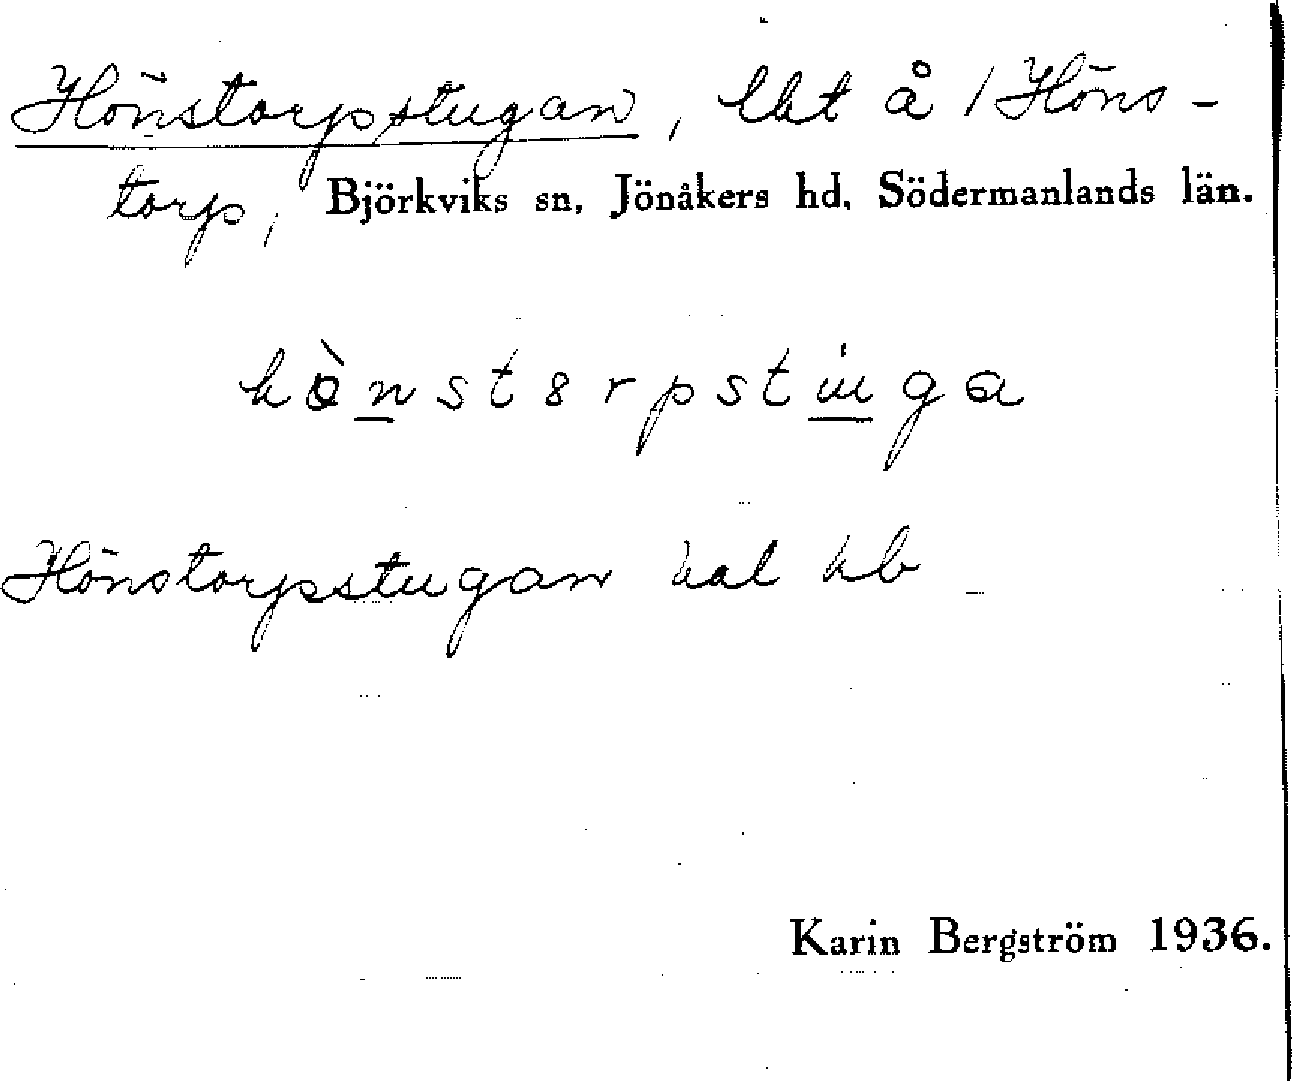 Hönstorpsstugan, lht å 1 Höns-
torp, Björkviks sn, Jönåkers hd, Södermanlands län.
Hönstorpsstugan hb
Karin Bergström 1936.